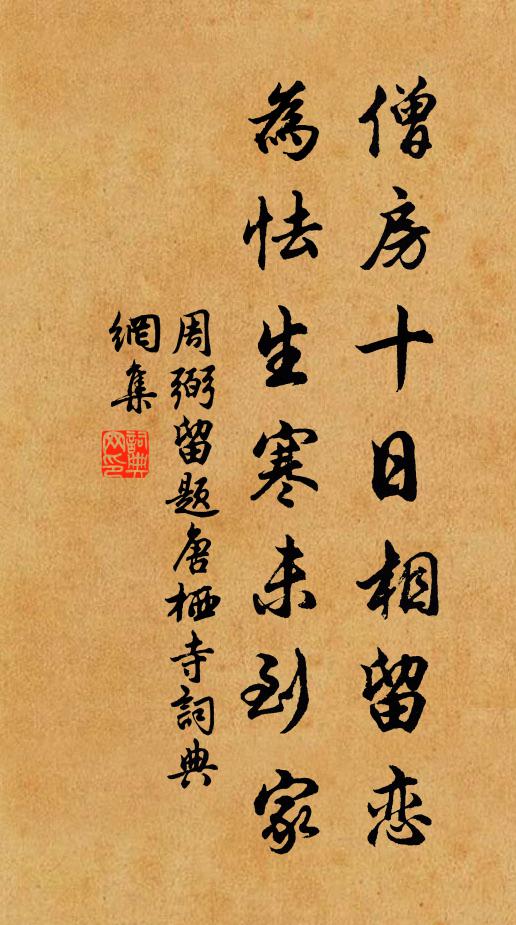 僧房十日相留恋
為怯生寒未到家
周弼留题唐栖寺詞典
網集
詞典
网印